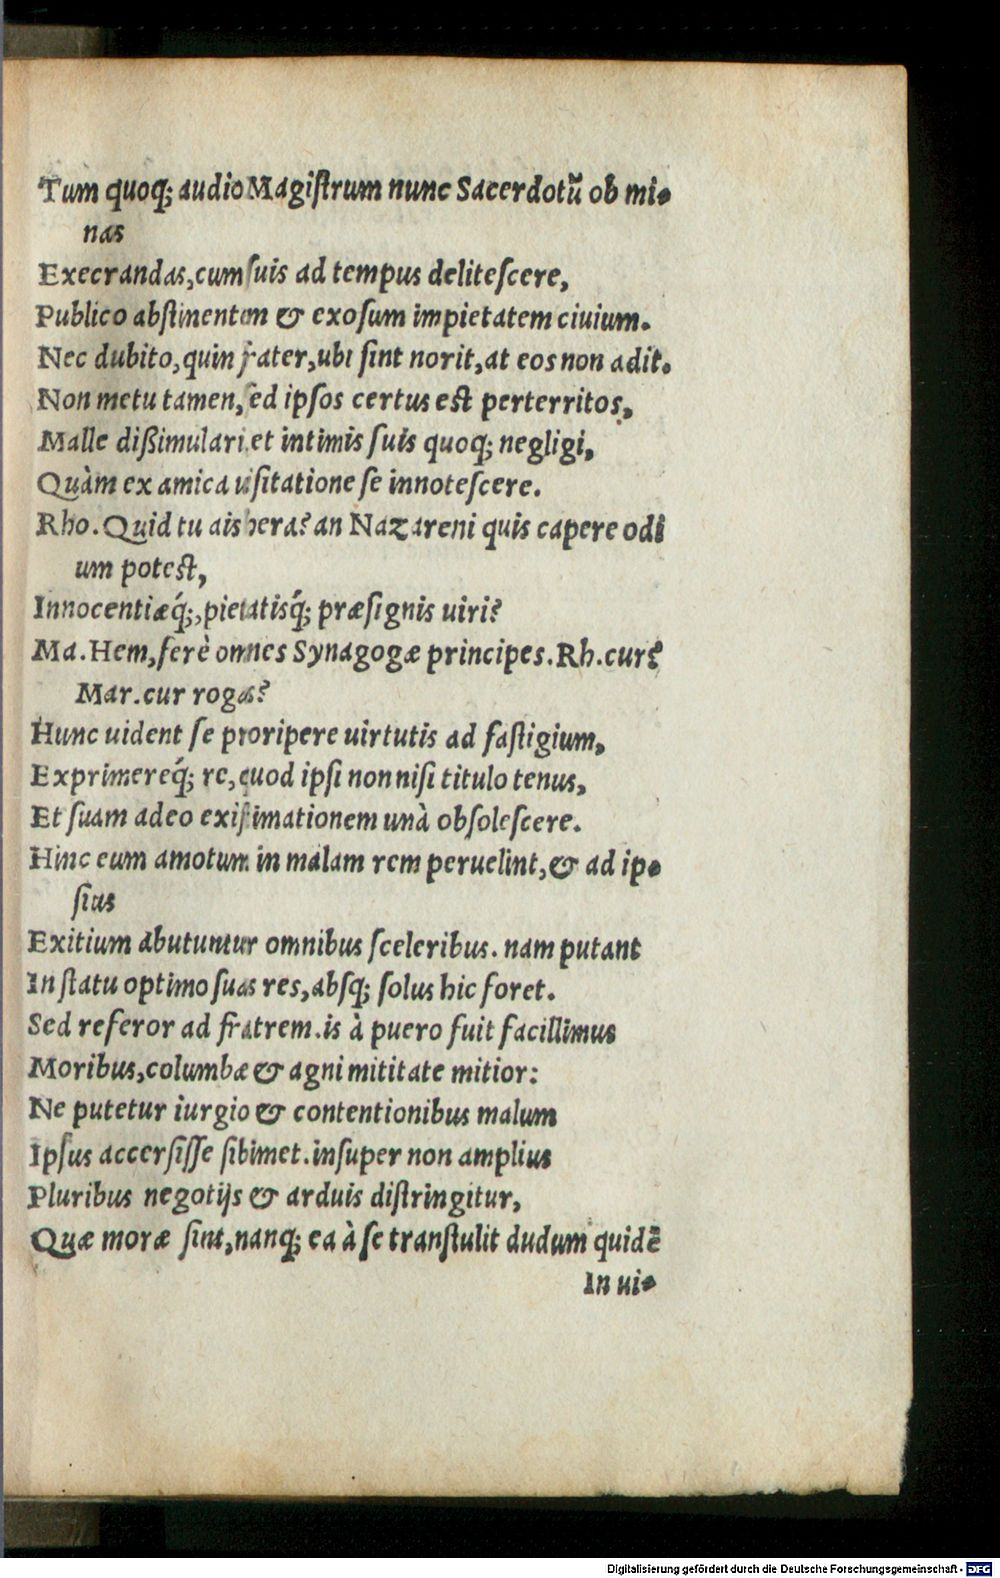 Tum quoq; audio Magiſtrum nunc Sacerdotū ob mi-
nas
Execrandas, cum ſuis ad tempus deliteſcere,
Publico abſtinentem & exoſum impietatem ciuium.
Nec dubito, quin frater, ubi ſint norit, at eos non adit.
Non metu tamen, ſed ipſos certus eſt perterritos,
Malle dißimulari et intimis ſuis quoq; negligi,
Quàm ex amica uiſitatione ſe innoteſcere.
Rho. Quid tu ais hera? an Nazareni quis capere odi
um poteſt,
Innocentiæq́;, pietatisq́; præſignis uiri?
Ma. Hem, ferè omnes Synagogæ principes. Rh. cur?
Mar. cur rogas?
Hunc uident ſe proripere uirtutis ad faſtigium,
Exprimereq́; re, quod ipſi non niſi titulo tenus,
Et ſuam adeo exiſtimationem unà obſoleſcere.
Hinc eum amotum in malam rem peruelint, & ad ip-
ſius
Exitium abutuntur omnibus ſceleribus. nam putant
In ſtatu optimo ſuas res, abſq; ſolus hic foret.
Sed referor ad fratrem. is à puero fuit facillimus
Moribus, columbæ & agni mititate mitior:
Ne putetur iurgio & contentionibus malum
Ipſus accerſiſſe ſibimet. inſuper non amplius
Pluribus negotijs & arduis diſtringitur,
Quæ moræ ſint, nanq; ea à ſe tranſtulit dudum quidē
In ui-
Digitalisierung gefördert durch die Deutsche Forschungsgemeinschaft - DFG